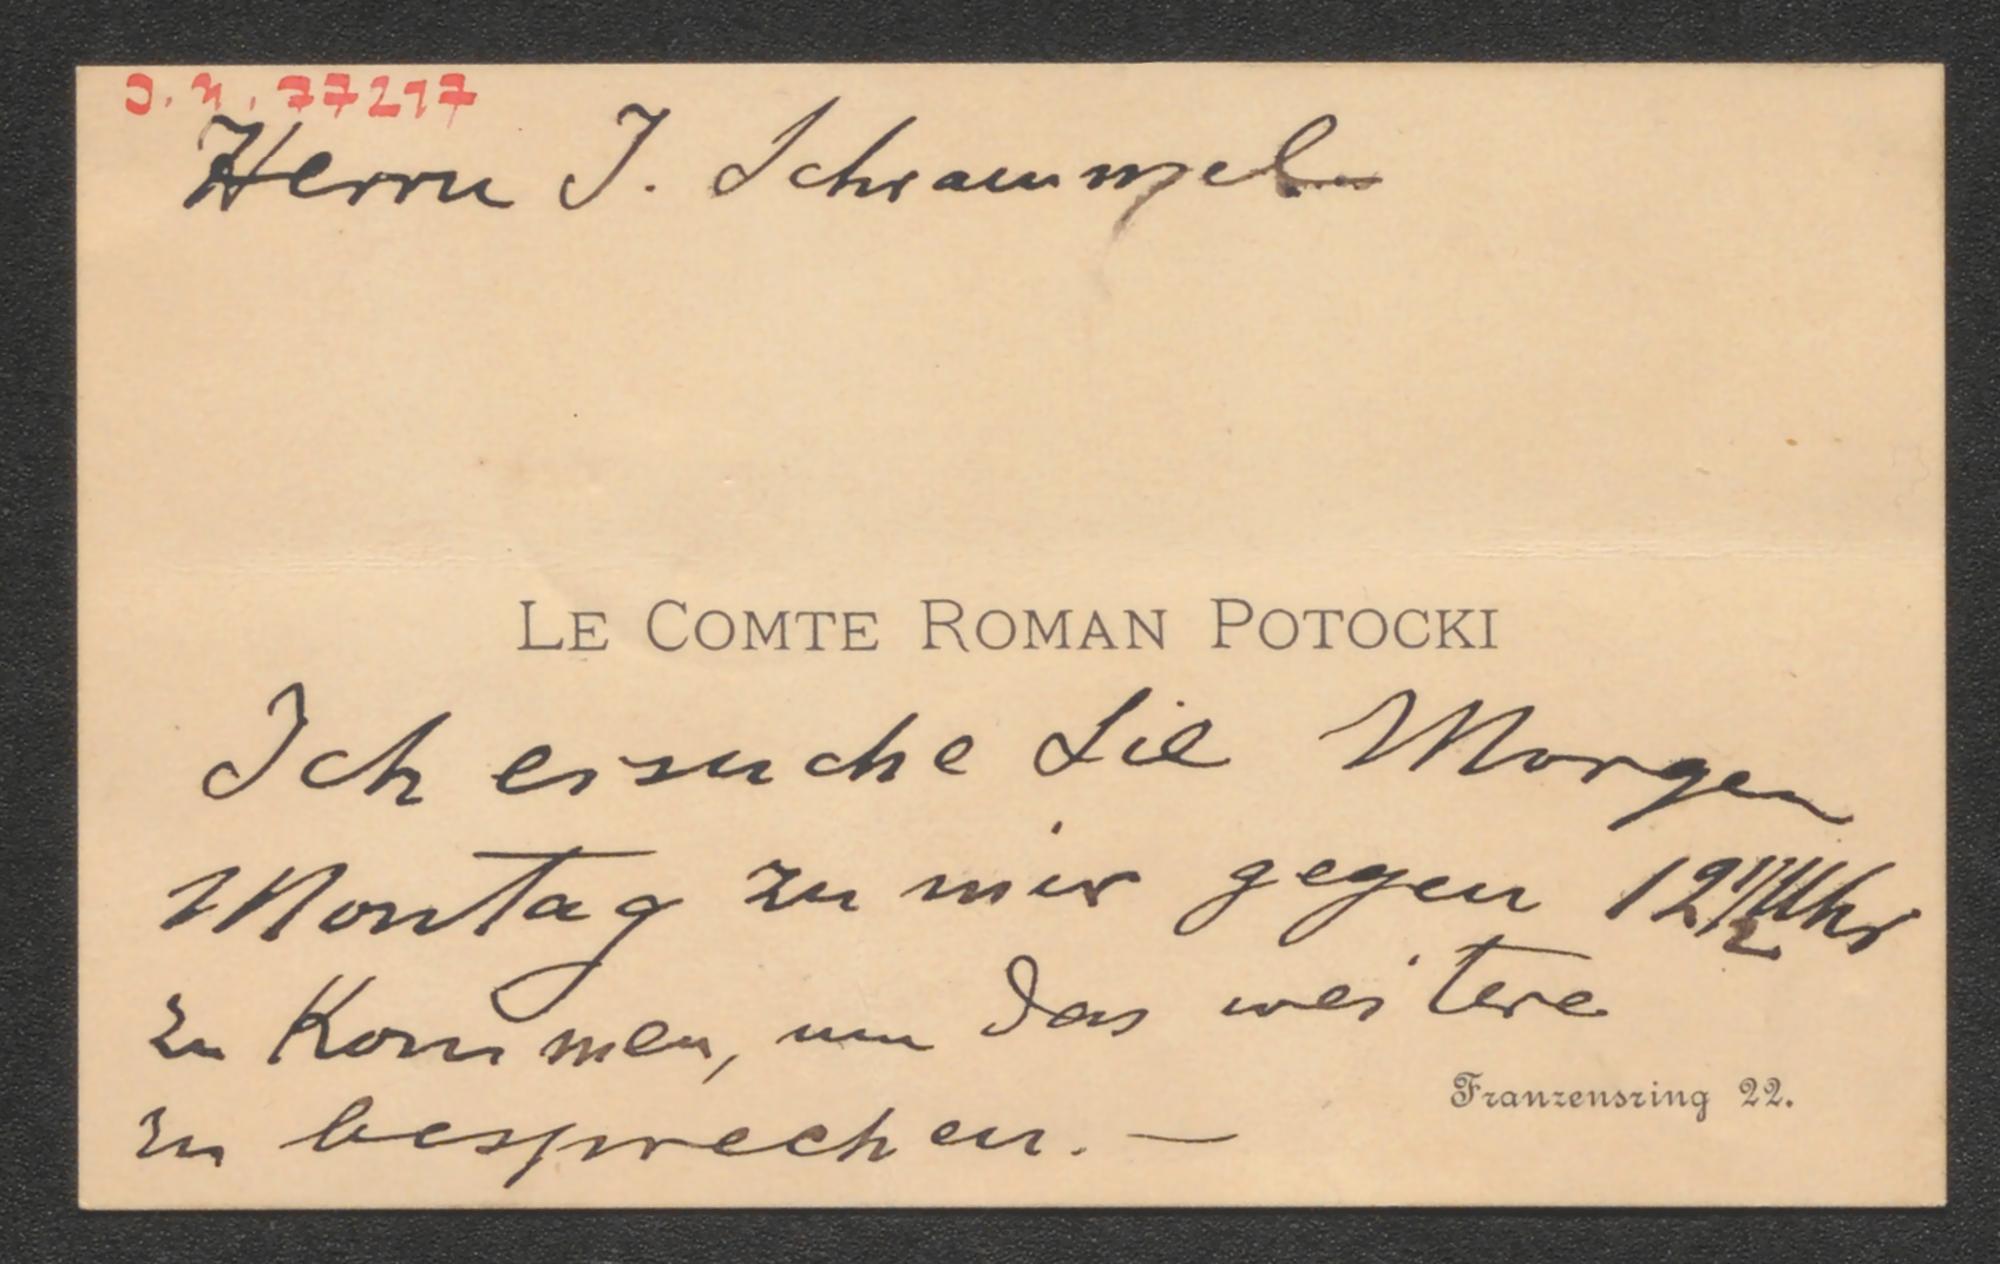 J. N. 77217
Herrn J. Schrammel
LE COMTE ROMAN POTOCKI
Ich ersuche Sie Morgen
Montag zu mir gegen 12 1/2 Uhr
zu Kommen, um das weitere
Franzensring 22.
zu besprechen. —